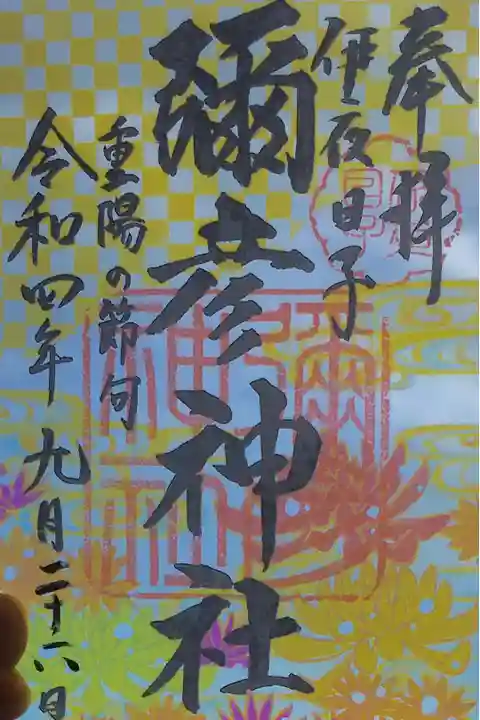 奉拝
伊夜日子
彌彦神社
重陽の節句
令和四年九月二十六日